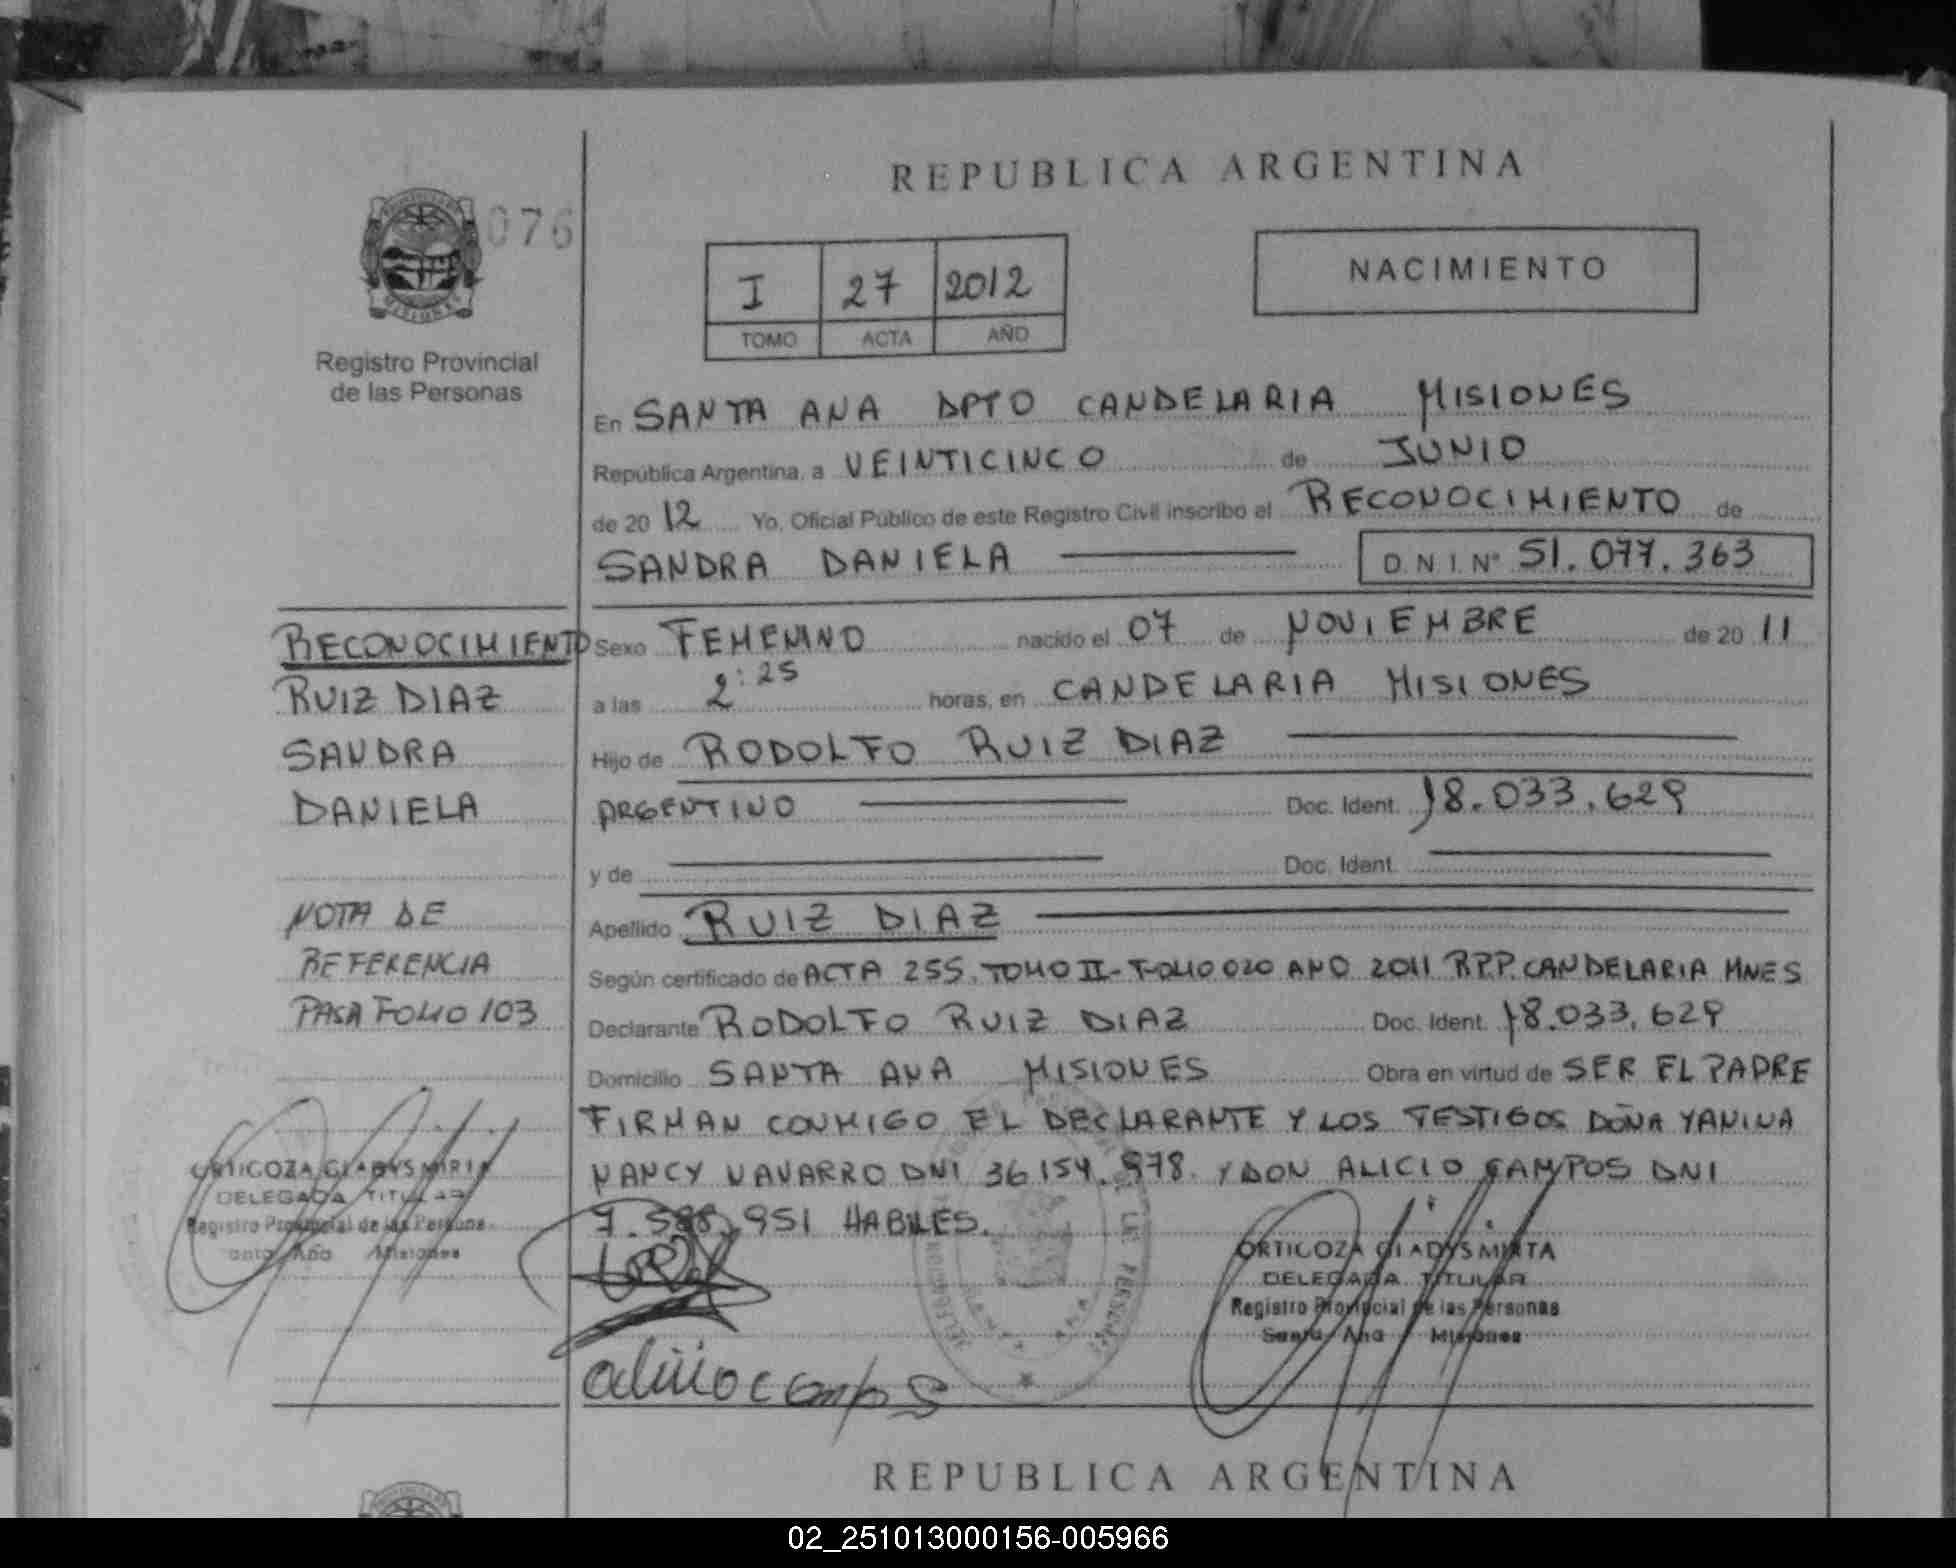 REPUBLICA ARGENTINA
076
NACIMIENTO
I 27 2012
TOMO ACTA AÑO
Registro Provincial
de las Personas
En SANTA ANA DPTO CANDELARIA MISIONES
República Argentina, a VEINTICINCO de JUNIO
de 20 12 Yo, Oficial Público de este Registro Civil inscribo el RECONOCIMIENTO de
SANDRA DANIELA D.N.I. Nº 51.077.363
RECONOCIMIENTO
RUIZ DIAZ
SANDRA
DANIELA
NOTA DE
REFERENCIA
PASA FOLIO 103
Sexo FEMENINO nacido el 07 de NOVIEMBRE de 20 11
a las 2:25 horas, en CANDELARIA MISIONES
Hijo de RODOLFO RUIZ DIAZ
ARGENTINO Doc. Ident. 18.033.629
y de Doc. Ident.
Apellido RUIZ DIAZ
Según certificado de ACTA 255. TOMO II - FOLIO 020 AÑO 2011 R.P.P. CANDELARIA MNES
Declarante RODOLFO RUIZ DIAZ Doc. Ident. 18.033.629
Domicilio SANTA ANA MISIONES Obra en virtud de SER EL PADRE
FIRMAN CONMIGO EL DECLARANTE Y LOS TESTIGOS DOÑA YANINA
NANCY NAVARRO DNI 36.154.978. Y DON ALICIO CAMPOS DNI
7.588.951 HABILES.
ORTIGOZA GLADYS MIRTA
DELEGADA TITULAR
Registro Provincial de las Personas
Santa Ana Misiones
ORTIGOZA GLADYS MIRTA
DELEGADA TITULAR
Registro Provincial de las Personas
Santa Ana Misiones
alicio campos
REPUBLICA ARGENTINA
02_251013000156-005966